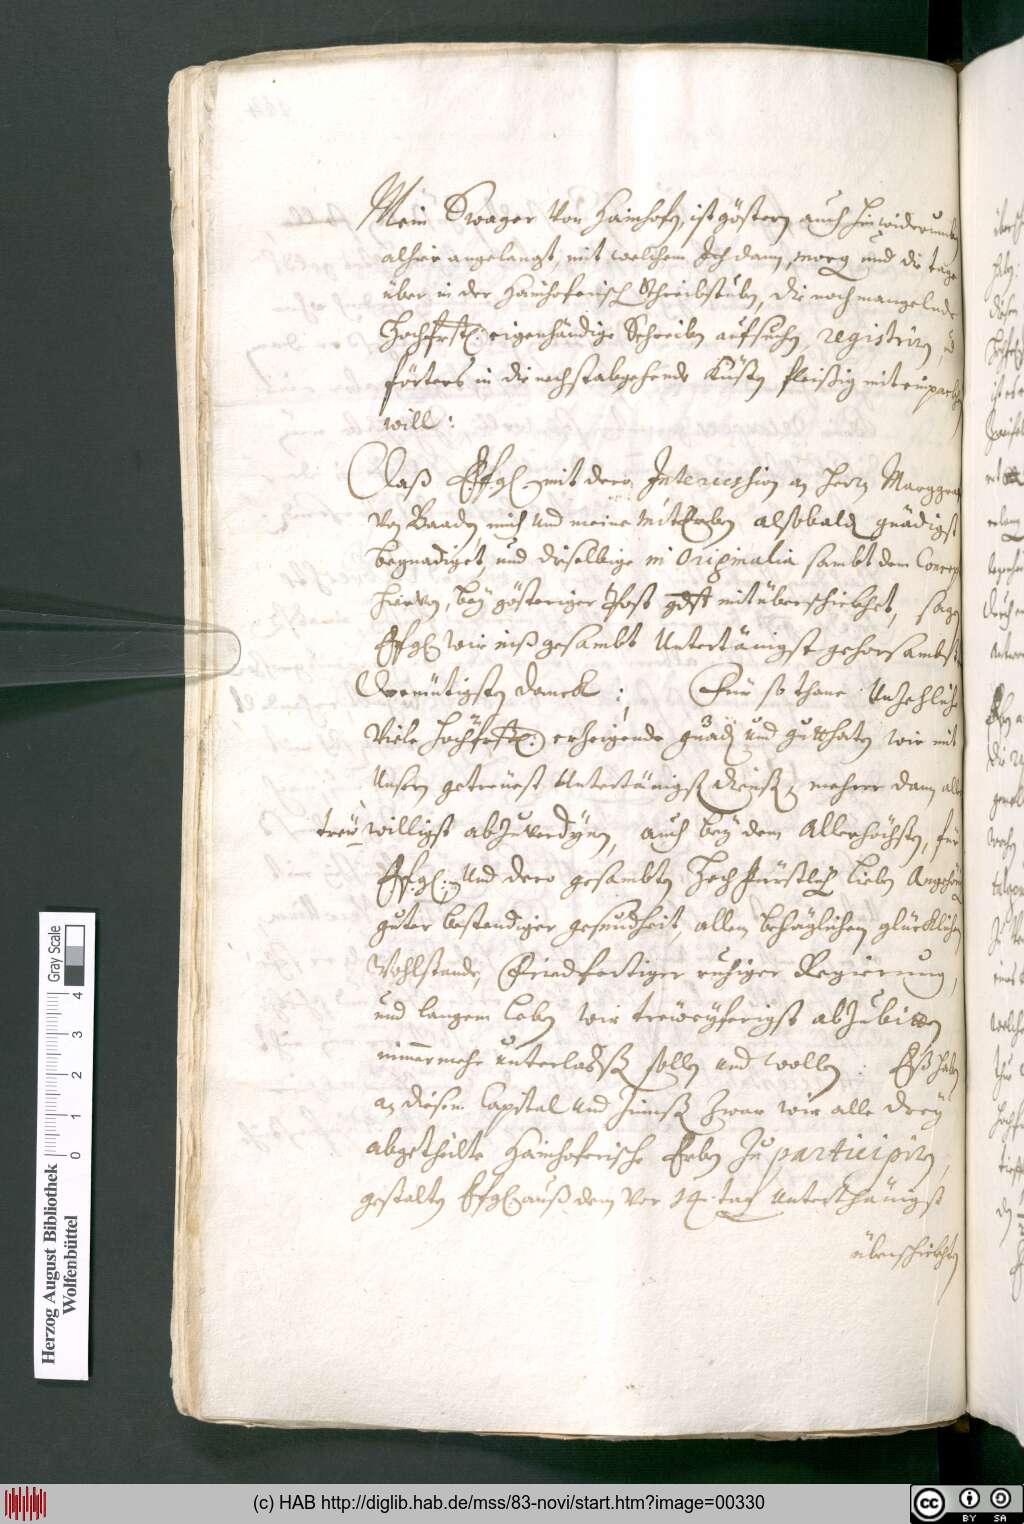 Mein Swager Von Hainhofen, ist göstern auch hinwiderumben
alhier angelangt, mit welchem Ich dann morg und die tage
über in der Hainhoferisch Schreibstuben, die noch mangelnde
Hochfrstl: eigenhändige Schreiben aufsuchen, registrirn, 
förters in die nechstabgehende Küsten fleißig mit einpackhen
will:
Daß Effgl mit dero Intercession an Herrn Marggraf
Von Baaden, mich und meine MitErben alsobald gnädigst
begnadiget, und dieselbige in Originalia sambt dem Concept
hiervon, bey gösteriger Post mitüberschickhet, sage
Effgl wir inßgesambt Untertänigst gehorsambst
Demütigsten danck; Für so thane Unzehliche
Viele Hochfrstl: erzeigende gnad und gutthaten wir mit
Unsern getreüest Untertänigst dienst mehrer dann alle
treü willigst abzuverdynen, auch bey dem Allerhöchsten, für
Effgl: Und dero gesambten HochFürstlich Lieben Angehörig
guter bestendiger gesundheit, allem behäglichem glücklichen
Wohlstande, Friedfertiger ruhiger Regierung,
und langem Leben wir treüeyferigst abzubitten
nimmermehr unterlassen sollen und wollen: Eß haben
an diesem Capital Und Zinnß zwar wir alle drey
abgetheilte Hainhoferische Erben zu participirn,
gestalten Effgl auß dem vor 14. tag Unterthänigst
überschickhten
Herzog August Bibliothek
Wolfenbüttel
0 1 2 3 4
Gray Scale
(c) HAB http://diglib.hab.de/mss/83-novi/start.htm?image=00330
cc BY SA